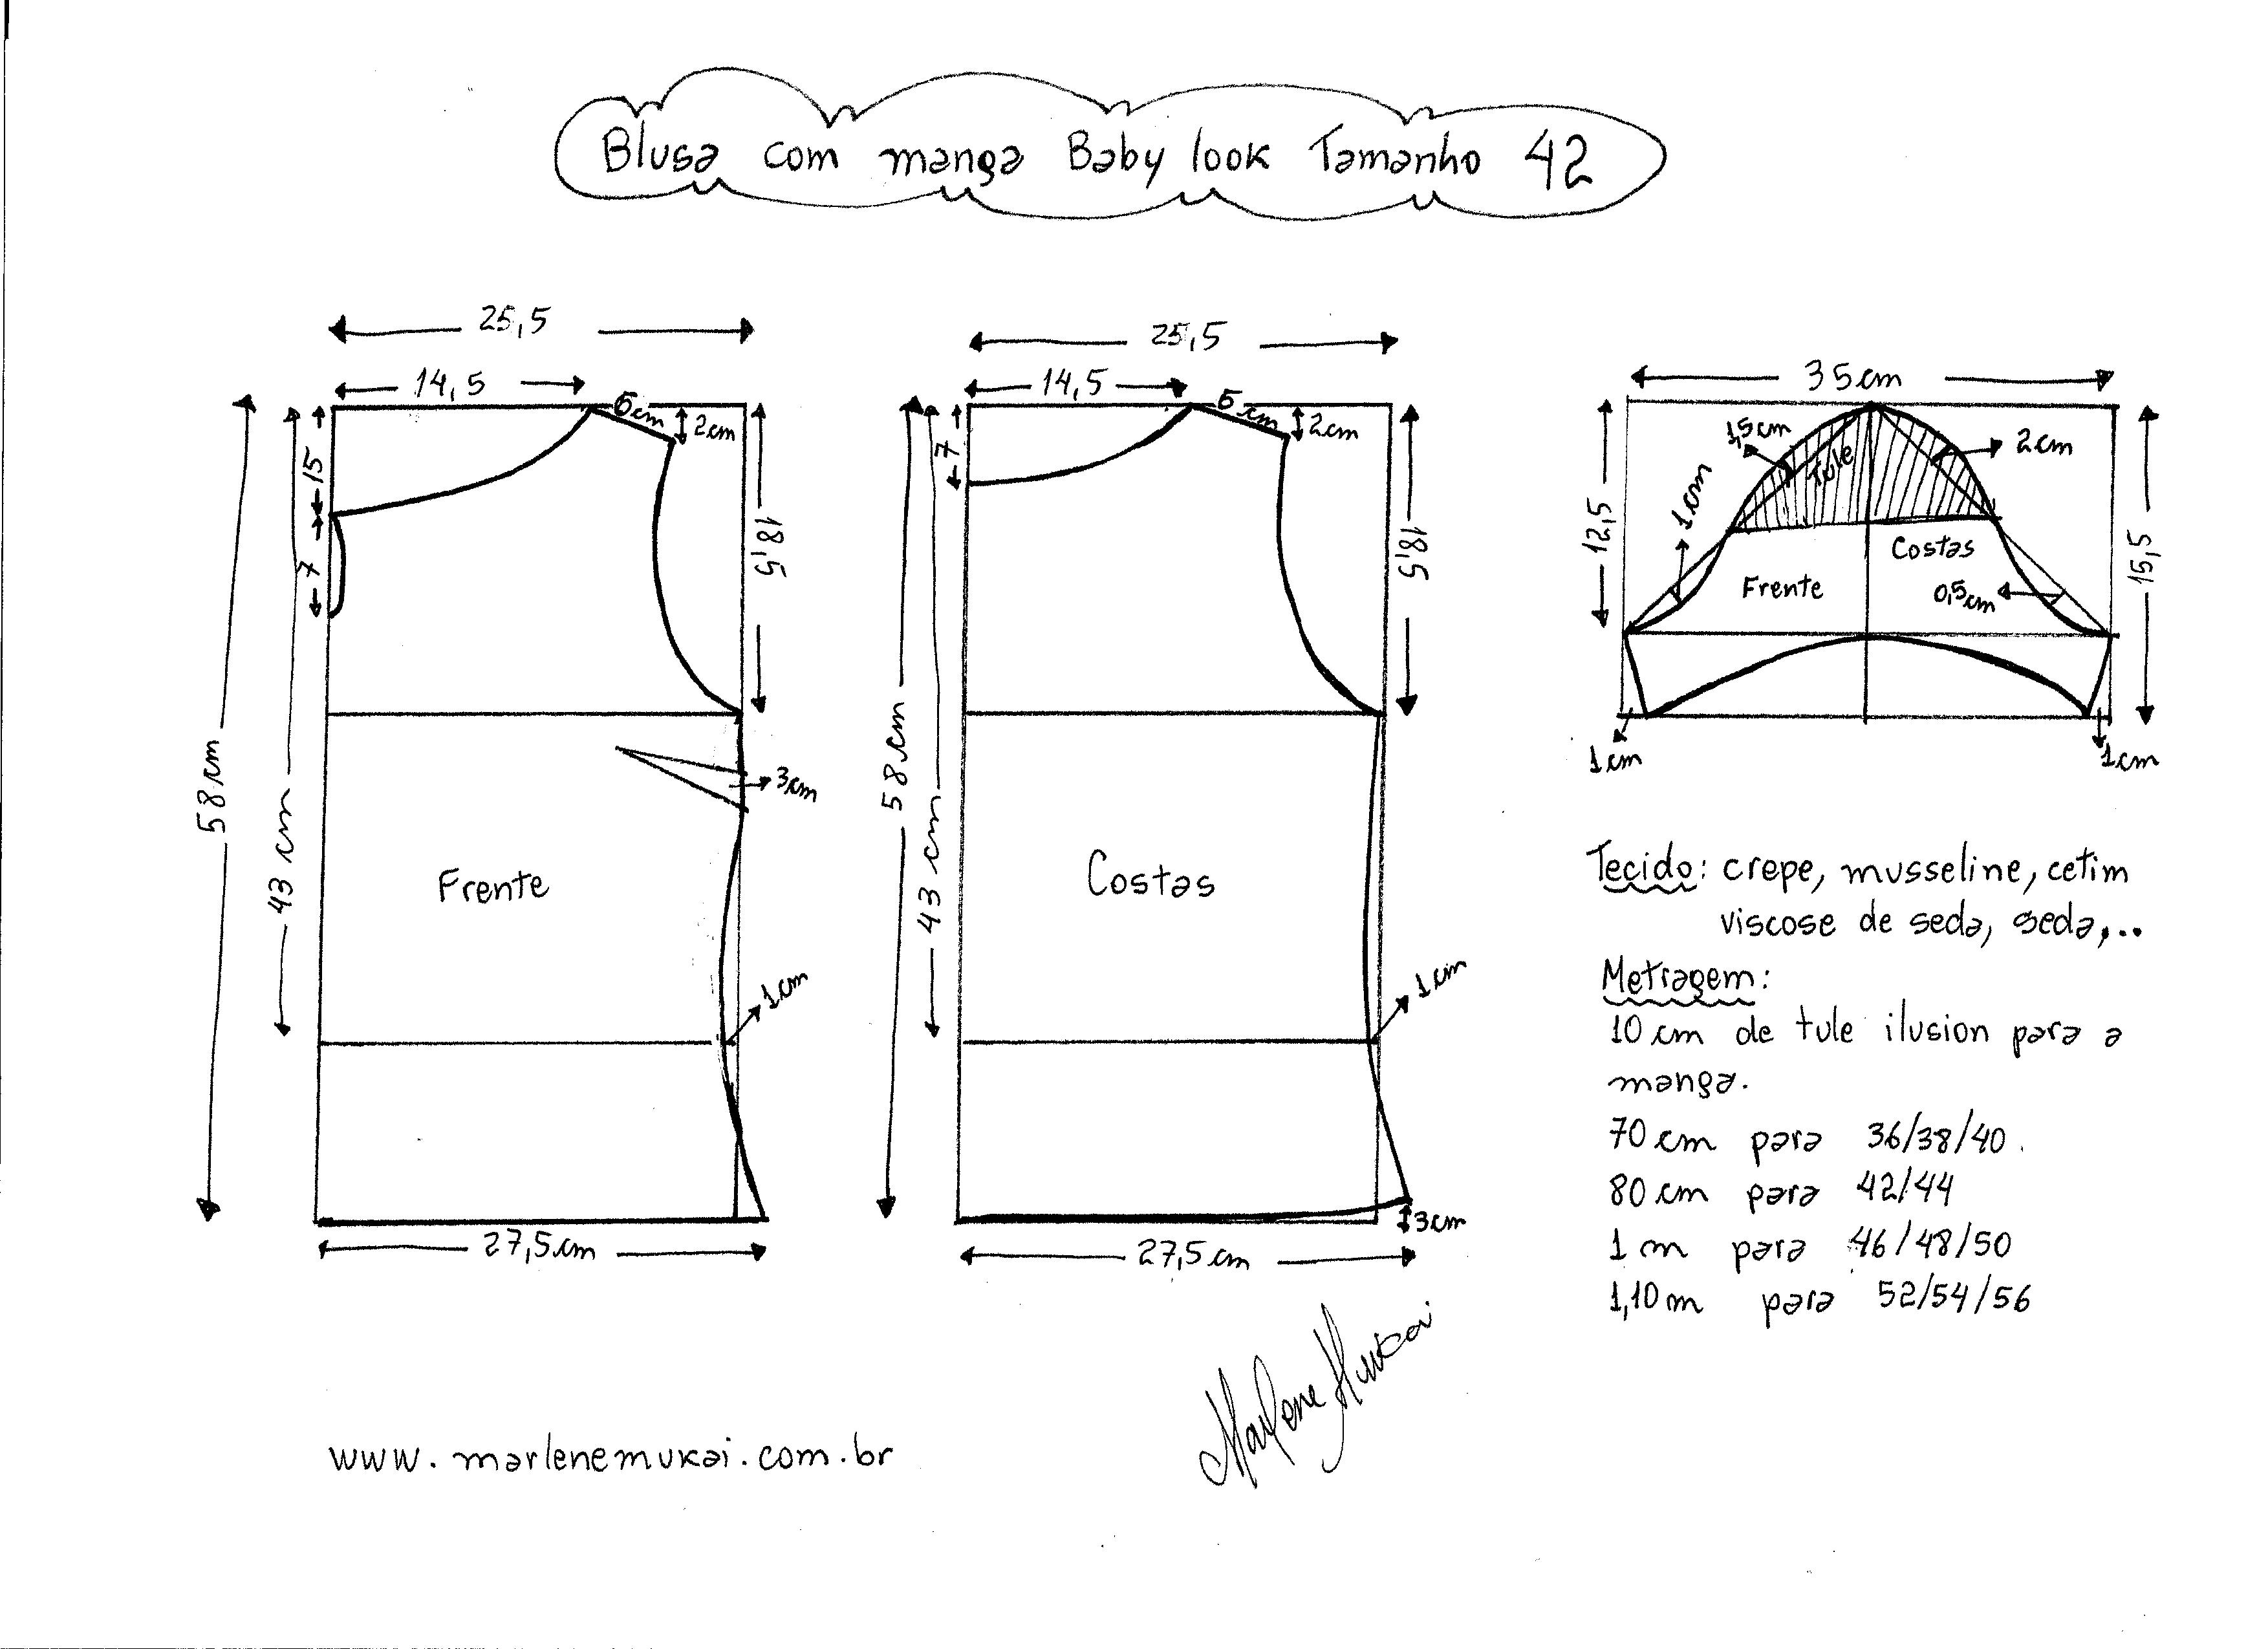 Blusa com manga Baby look Tamanho 42
25,5
14,5
6cm
2cm
15
7
18,5
58cm
43 cm
3cm
Frente
1cm
27,5cm
25,5
14,5
6cm
2cm
7
18,5
58cm
43 cm
Costas
1cm
3cm
27,5cm
35cm
12,5
1,5cm
Tule
2cm
1cm
Costas
Frente
0,5cm
15,5
1cm
1cm
Tecido: crepe, musseline, cetim
viscose de seda, seda,..
Metragem:
10 cm de tule ilusion para a
manga.
70 cm para 36/38/40.
80 cm para 42/44
1 m para 46/48/50
1,10m para 52/54/56
Marlene Mukai
www.marlenemukai.com.br